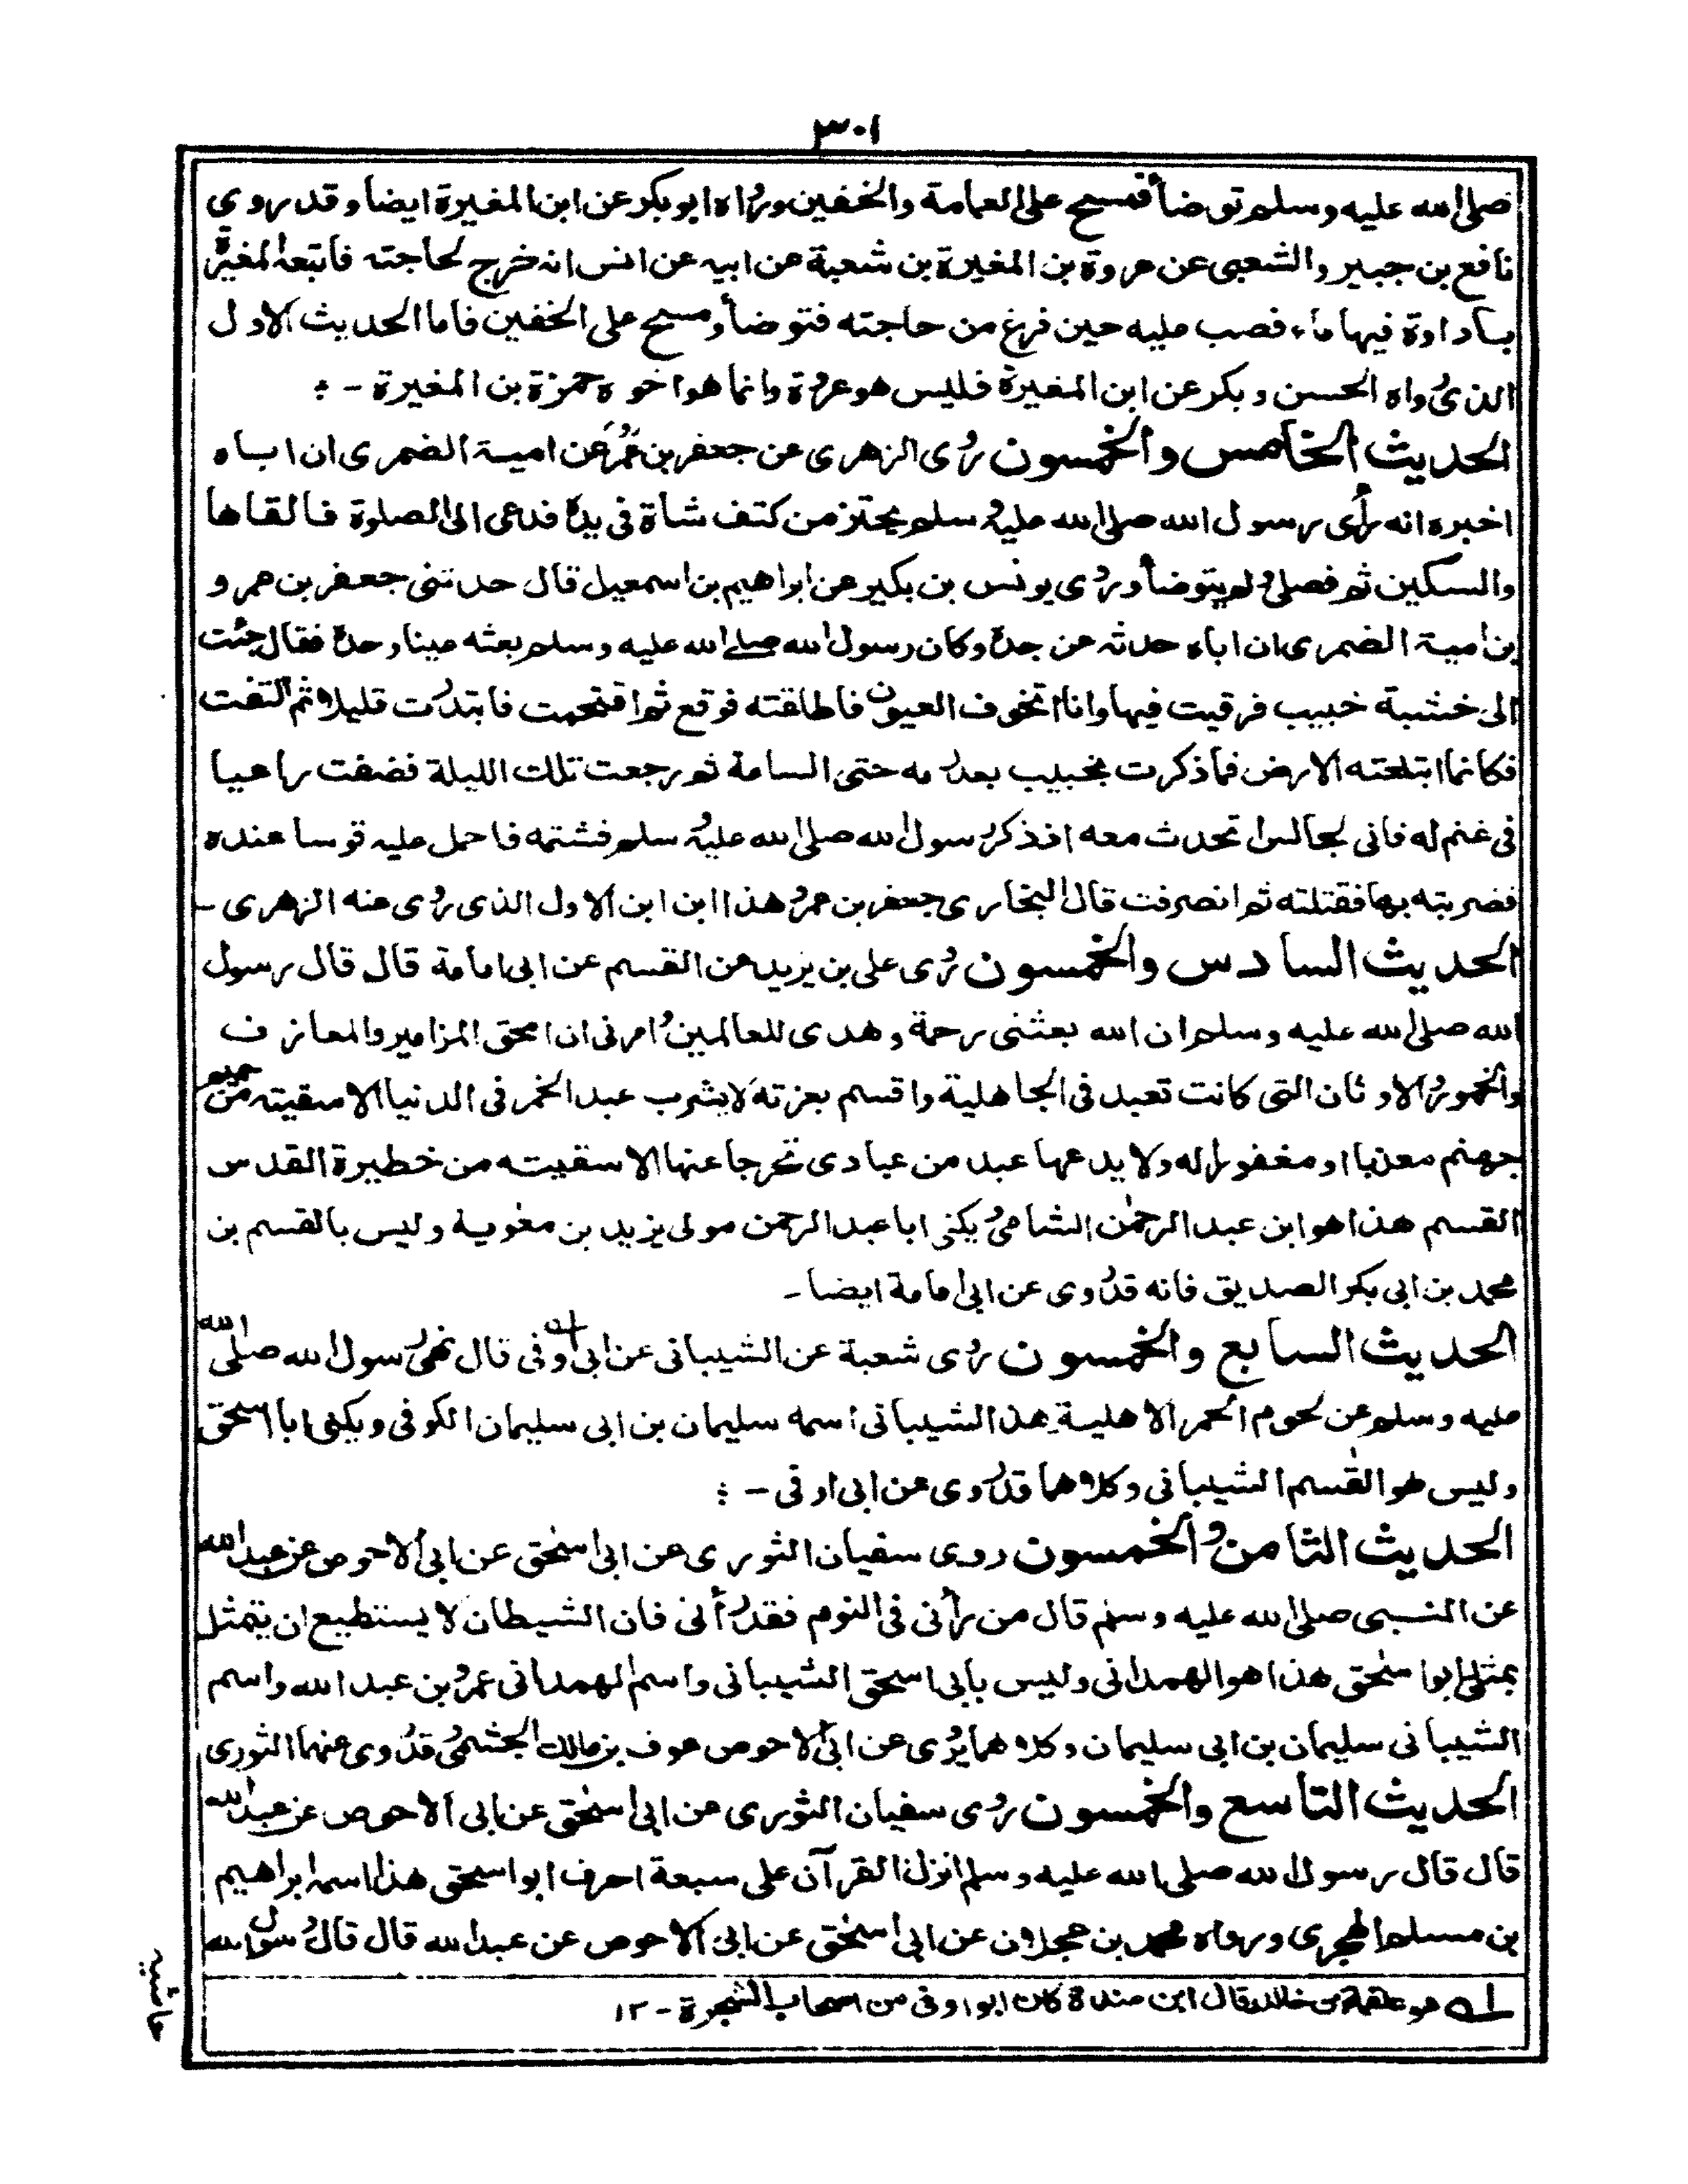 ٣٠١
صلى الله عليه وسلم توضأ فمسح على العمامة والخفين ورواه ابو بكر عن ابن المغيرة ايضا وقد روى
نافع بن جبير والشعبى عن عروة بن المغيرة بن شعبة عن ابيه عن انس انه خرج لحاجته فاتبعه المغيرة
باداوة فيها ماء فصب عليه حين فرغ من حاجته فتوضأ ومسح على الخفين فاما الحديث الاول
الذى رواه الحسن وبكر عن ابن المغيرة فليس هو عروة وانما هو اخوه حمزة بن المغيرة - ؛
الحديث الخامس والخمسون روى الزهرى عن جعفر بن عمرو عن امية الضمرى ان اباه
اخبره انه رأى رسول الله صلى الله عليه وسلم يحتز من كتف شاة فى يده فدعى الى الصلوة فالقاها
والسكين ثم فصلى ولم يتوضأ وروى يونس بن بكير عن ابراهيم بن اسمعيل قال حدثنى جعفر بن عمرو
بن امية الضمرى ان اباه حدثه عن جده وكان رسول الله صلى الله عليه وسلم بعثه عينا وحدة فقال جئت
الى خشبة خبيب فرقيت فيها وانا اتخوف العيون فاطلقته فوقع ثم اقتحمت فابتدرت قليلا ثم التفت
فكانما ابتلعته الارض فما ذكرت بخبيب بعد رمه حتى الساعة ثم رجعت تلك الليلة فضفت راعيا
فى غنم له فانى لجالس اتحدث معه اذ ذكر رسول الله صلى الله عليه وسلم فشتمه فاحمل عليه قوسا عنده
فضربته بها فقتلته ثم انصرفت قال البخارى جعفر بن عمرو هذا ابن ابن الاول الذى روى عنه الزهرى -
الحديث السادس والخمسون روى على بن يزيد عن القسم عن ابى امامة قال قال رسول
الله صلى الله عليه وسلم ان الله بعثنى رحمة وهدى للعالمين وامرنى ان امحق المزامير والمعازف
والخمور والاوثان التى كانت تعبد فى الجاهلية واقسم بعزته لا يشرب عبد الخمر فى الدنيا الا سقيته من حميم
جهنم معذبا او مغفورا له ولا يدعها عبد من عبادى تحرجا عنها الا سقيته من خطيرة القدس
القسم هذا هو ابن عبد الرحمن الشامى ويكنى ابا عبد الرحمن مولى يزيد بن معوية وليس بالقسم بن
محمد بن ابى بكر الصديق فانه قد روى عن ابى امامة ايضا -
الحديث السابع والخمسون روى شعبة عن الشيبانى عن ابى اوفى له قال نهى رسول الله صلى الله
عليه وسلم عن لحوم الحمر الاهلية هذا الشيبانى اسمه سليمان بن ابى سليمان الكوفى ويكنى ابا اسحق
وليس هو القسم الشيبانى وكلاهما قد روى عن ابى اوفى - ؛
الحديث الثامن والخمسون روى سفيان الثورى عن ابى اسحق عن ابى الاحوص عن عبد الله
عن النبى صلى الله عليه وسلم قال من رأنى فى النوم فقد رأنى فان الشيطان لا يستطيع ان يتمثل
بمثلى ابو اسحق هذا هو الهمدانى وليس بابى اسحق الشيبانى واسم الهمدانى عمرو بن عبد الله واسم
الشيبانى سليمان بن ابى سليمان وكلاهما يروى عن ابى الاحوص عوف بن مالك الجشمى وقد روى عنهما الثورى
الحديث التاسع والخمسون روى سفيان الثورى عن ابى اسحق عن ابى الاحوص عن عبد الله
قال قال رسول الله صلى الله عليه وسلم انزل القرآن على سبعة احرف ابو اسحق هذا اسمه ابراهيم
بن مسلم الهجرى ورواه محمد بن عجلان عن ابى اسحق عن ابى الاحوص عن عبد الله قال قال رسول الله
له هو علقمة بن خالد قال ابن مندة كان ابو اوفى من اصحاب الشجرة - ١٢
حاشیہ